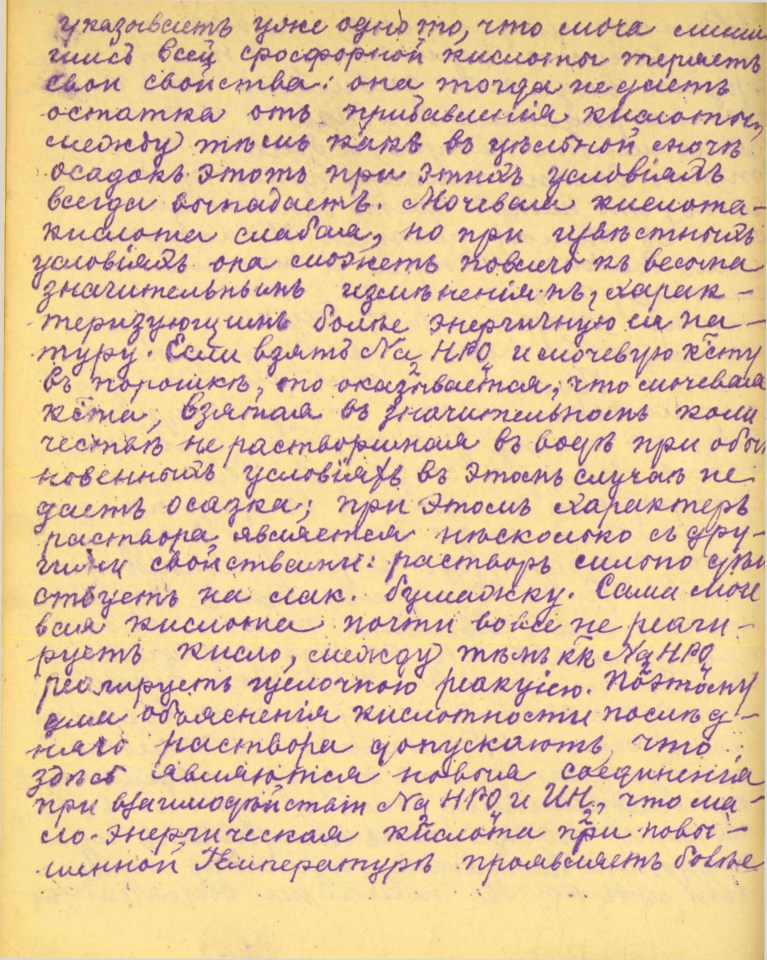 указываетъ уже одно то, что моча лиши
шись всей фосфорной кислоты теряетъ
свои свойства: она тогда не даетъ
остатка отъ прибавленія кислоты,
между тѣмъ какъ въ цѣльной мочѣ
осадокъ этотъ при этихъ условіяхъ
всегда выпадаетъ. Мочевая кислота –
кислота слабая, но при извѣстныхъ
условіяхъ она можетъ повести къ весьма
значительнымъ измѣненіямъ, харак –
теризующимъ болѣе энергичную ея на –
туру. Если взять Na2HPO4 и мочевую к̅ту
въ порошкѣ, то оказывается, что мочевая
к̅та, взятая въ значительномъ коли
чествѣ не растворимая въ водѣ при обы
новенныхъ условіяхъ въ этомъ случаѣ не
даетъ осазка; при этомъ характеръ
раствора является нѣсколько съ дру –
гими свойствами: растворъ сильно дѣй
ствуетъ на лак. бумажку. Сама моче
вая кислота почти вовсе не реаги –
руетъ кисло, между тѣмъ к̅к̅ Na2HPO4
реагируетъ щелочною реакціею. Поэтому
для объясненія кислотности послѣд –
няго раствора допускаютъ, что
здѣсь являются новыя соединенія
при взаимодѣйствіи Na2HPO4 и ИН2, что ма –
ло-энергическая кислота при повы –
шенной температурѣ проявляетъ болѣе